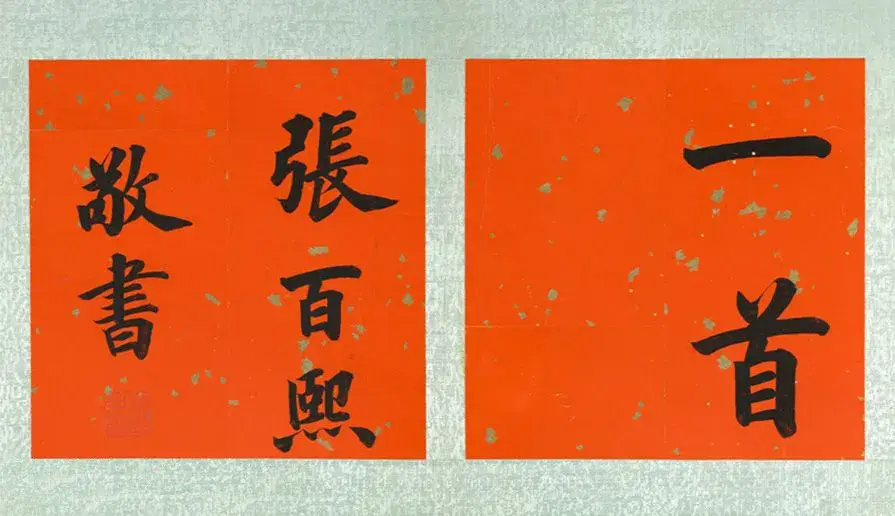 一首
張百熙
敬書